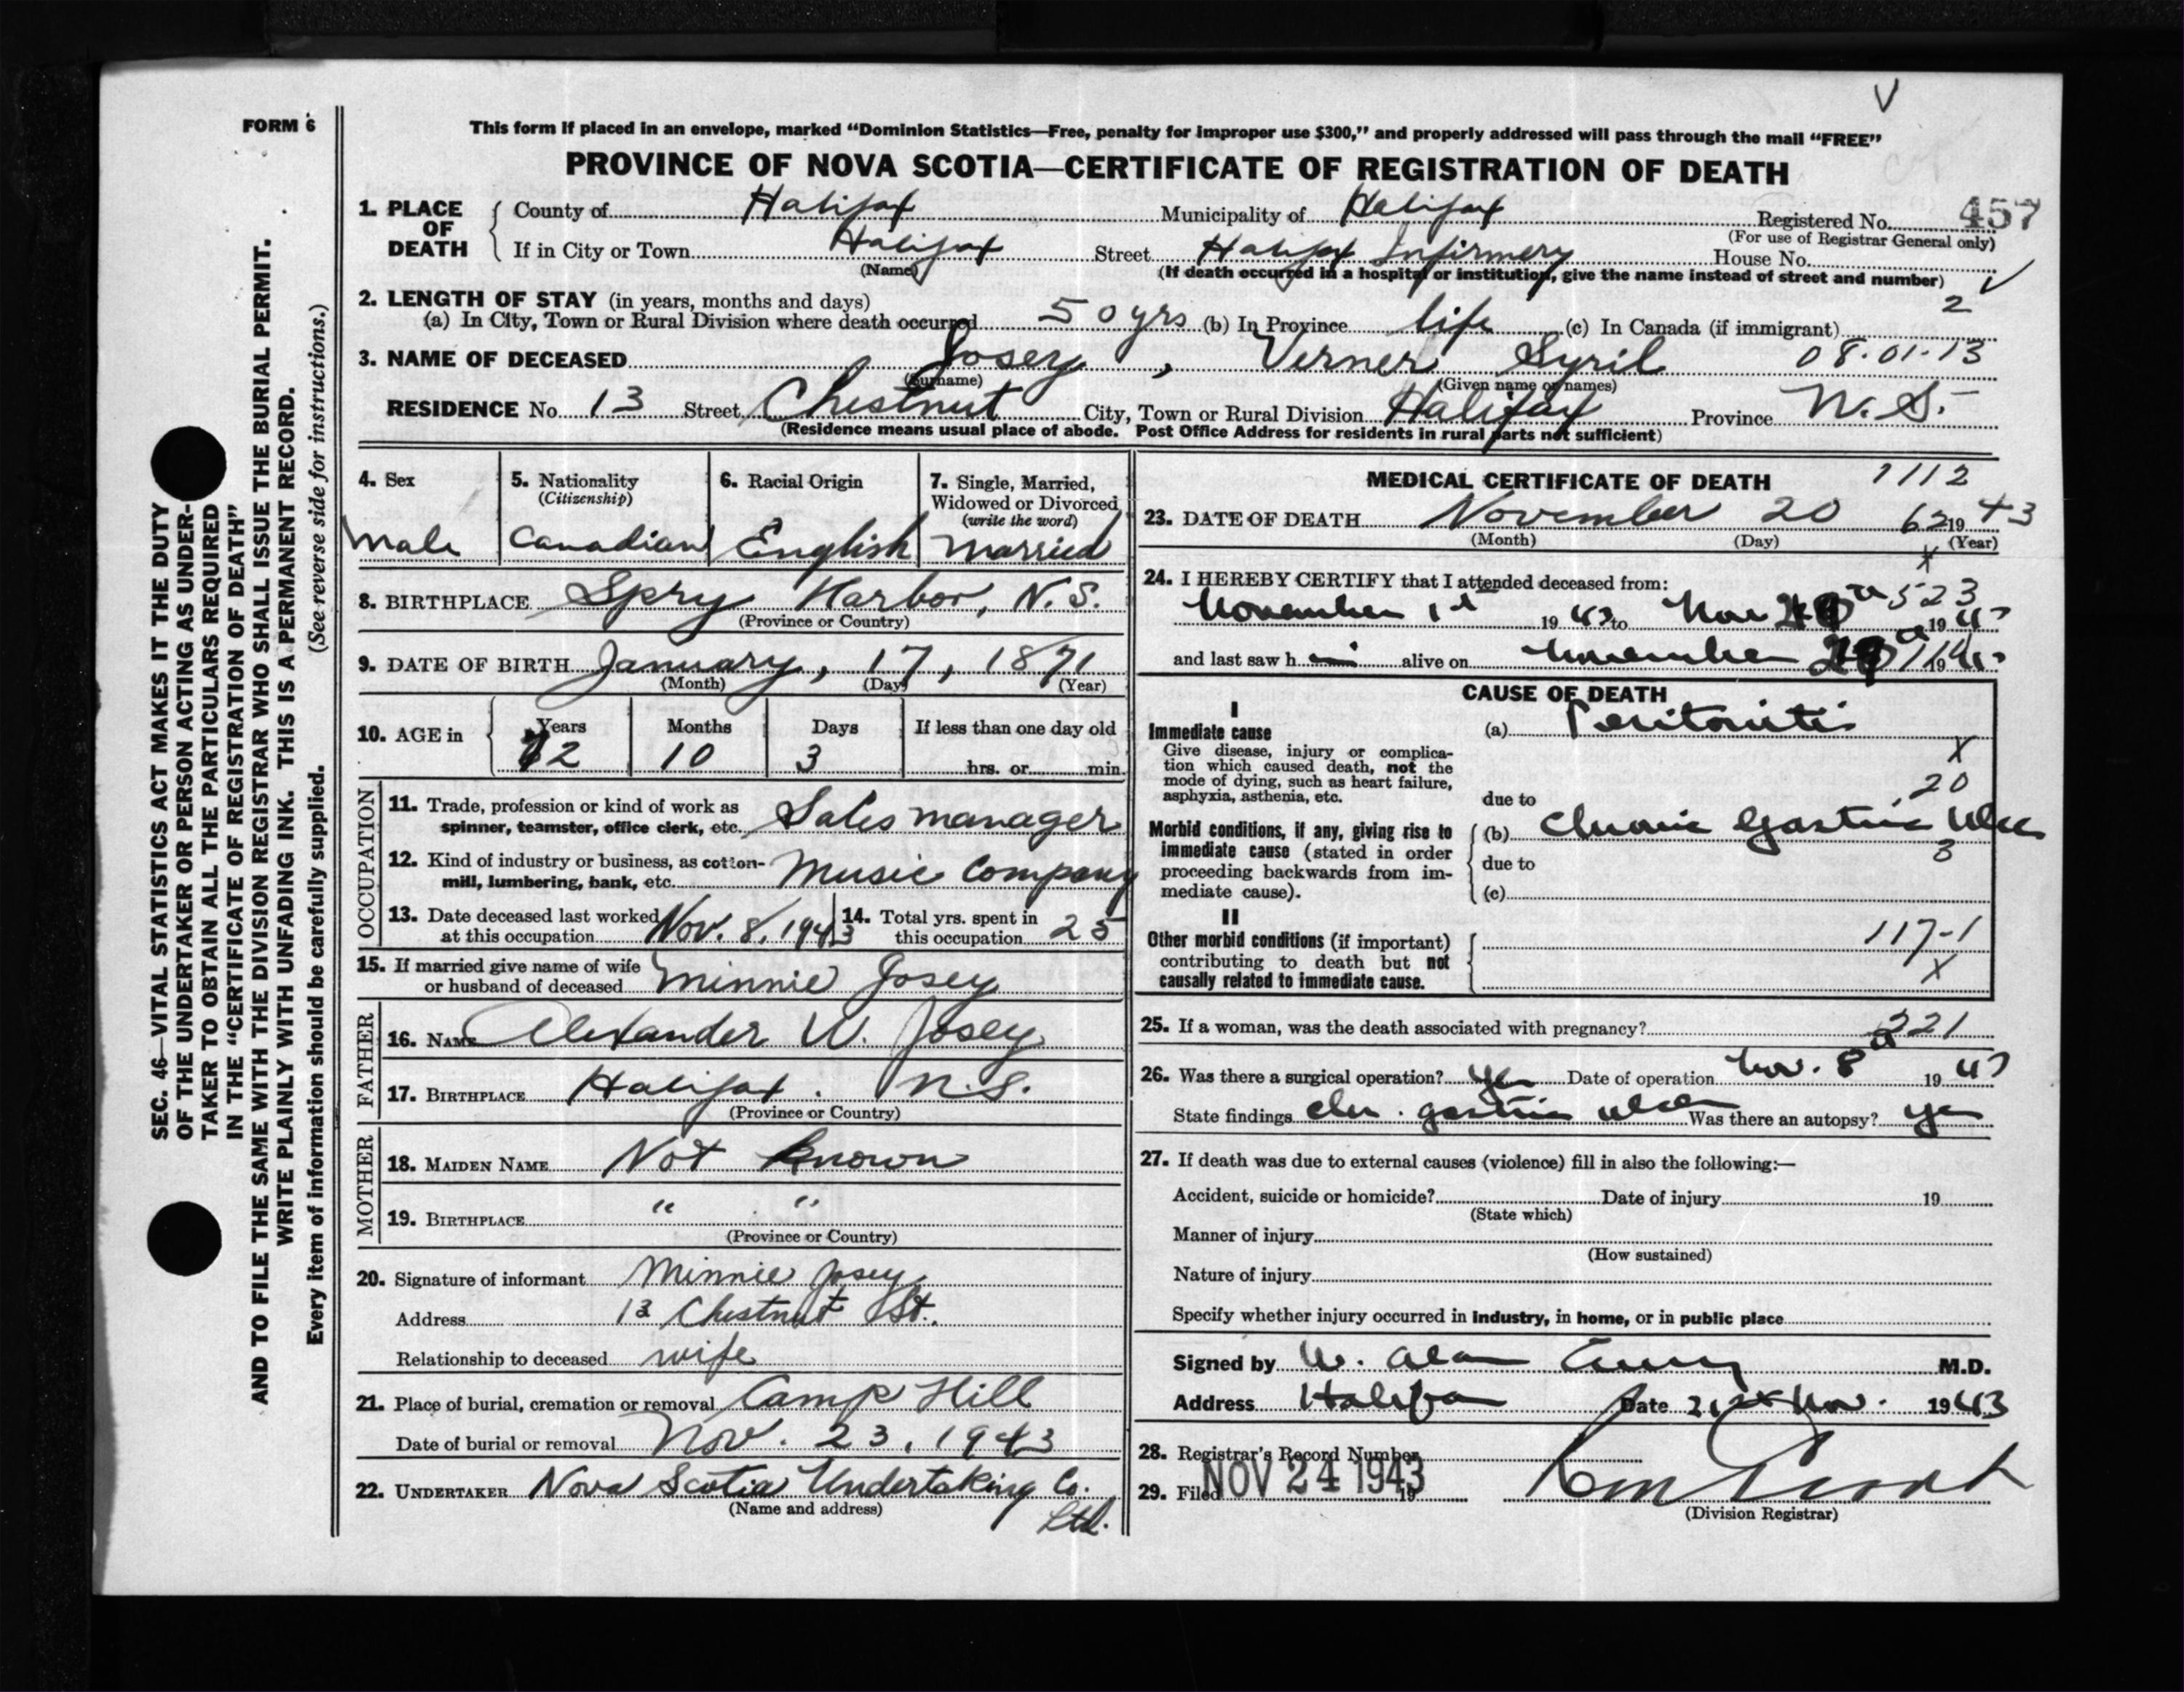 V
FORM 6
This form if placed in an envelope, marked “Dominion Statistics—Free, penalty for improper use $300,” and properly addressed will pass through the mail “FREE”
PROVINCE OF NOVA SCOTIA—CERTIFICATE OF REGISTRATION OF DEATH
1. PLACE OF DEATH { County of Halifax Municipality of Halifax Registered No. 457
(For use of Registrar General only)
If in City or Town Halifax Street Halifax Infirmery House No.
(Name) (If death occurred in a hospital or institution, give the name instead of street and number)
2. LENGTH OF STAY (in years, months and days) 2
(a) In City, Town or Rural Division where death occurred 50 yrs (b) In Province life (c) In Canada (if immigrant)
3. NAME OF DECEASED Josey, Verner Syril 08.01.13
(Surname) (Given name or names)
RESIDENCE No. 13 Street Chestnut City, Town or Rural Division Halifax Province N.S.
(Residence means usual place of abode. Post Office Address for residents in rural parts not sufficient)
4. Sex 5. Nationality 6. Racial Origin 7. Single, Married,
(Citizenship) Widowed or Divorced
(write the word)
Male Canadian English Married
8. BIRTHPLACE Spry Harbor, N.S.
(Province or Country)
9. DATE OF BIRTH January, 17, 1871
(Month) (Day) (Year)
10. AGE in { Years Months Days If less than one day old
72 10 3 hrs. or min.
OCCUPATION
11. Trade, profession or kind of work as
spinner, teamster, office clerk, etc. Sales manager
12. Kind of industry or business, as cotton-
mill, lumbering, bank, etc. Music Company
13. Date deceased last worked 14. Total yrs. spent in
at this occupation Nov. 8, 1943 this occupation 25
15. If married give name of wife
or husband of deceased Minnie Josey
FATHER
16. NAME Alexander W. Josey
17. BIRTHPLACE Halifax. N.S.
(Province or Country)
MOTHER
18. MAIDEN NAME Not Known
19. BIRTHPLACE " "
(Province or Country)
20. Signature of informant Minnie Josey
Address 13 Chestnut St.
Relationship to deceased wife
21. Place of burial, cremation or removal Camp Hill
Date of burial or removal Nov. 23, 1943
22. UNDERTAKER Nova Scotia Undertaking Co.
(Name and address) Ltd.
MEDICAL CERTIFICATE OF DEATH 1112
23. DATE OF DEATH November 20 62 1943
(Month) (Day) (Year)
X
24. I HEREBY CERTIFY that I attended deceased from: 523
November 1st 1943 to Nov 19 43
and last saw h im alive on November 19 43
CAUSE OF DEATH
I
Immediate cause (a) Peritonitis
Give disease, injury or complica-
tion which caused death, not the X
mode of dying, such as heart failure, 20
asphyxia, asthenia, etc. due to
Morbid conditions, if any, giving rise to { (b) Chronic Gastric Ulcer
immediate cause (stated in order 3
proceeding backwards from im- due to
mediate cause). (c)
II
Other morbid conditions (if important) 117-1
contributing to death but not X
causally related to immediate cause.
25. If a woman, was the death associated with pregnancy? 221
26. Was there a surgical operation? Yes Date of operation Nov. 8th 1943
State findings chr. gastric ulcer Was there an autopsy? yes
27. If death was due to external causes (violence) fill in also the following:—
Accident, suicide or homicide? Date of injury 19
(State which)
Manner of injury
(How sustained)
Nature of injury
Specify whether injury occurred in industry, in home, or in public place
Signed by W. Alan M.D.
Address Halifax Date 21st Nov. 1943
28. Registrar's Record Number
29. Filed NOV 24 1943 19
(Division Registrar)
SEC. 46—VITAL STATISTICS ACT MAKES IT THE DUTY
OF THE UNDERTAKER OR PERSON ACTING AS UNDER-
TAKER TO OBTAIN ALL THE PARTICULARS REQUIRED
IN THE “CERTIFICATE OF REGISTRATION OF DEATH”
AND TO FILE THE SAME WITH THE DIVISION REGISTRAR WHO SHALL ISSUE THE BURIAL PERMIT.
WRITE PLAINLY WITH UNFADING INK. THIS IS A PERMANENT RECORD.
Every item of information should be carefully supplied. (See reverse side for instructions.)